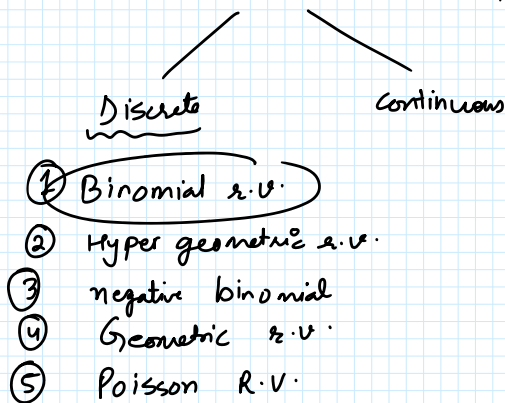 Discrete
Continuous
1 Binomial r.v.
2 Hyper geometric r.v.
3 negative binomial
4 Geometric r.v.
5 Poisson R.V.